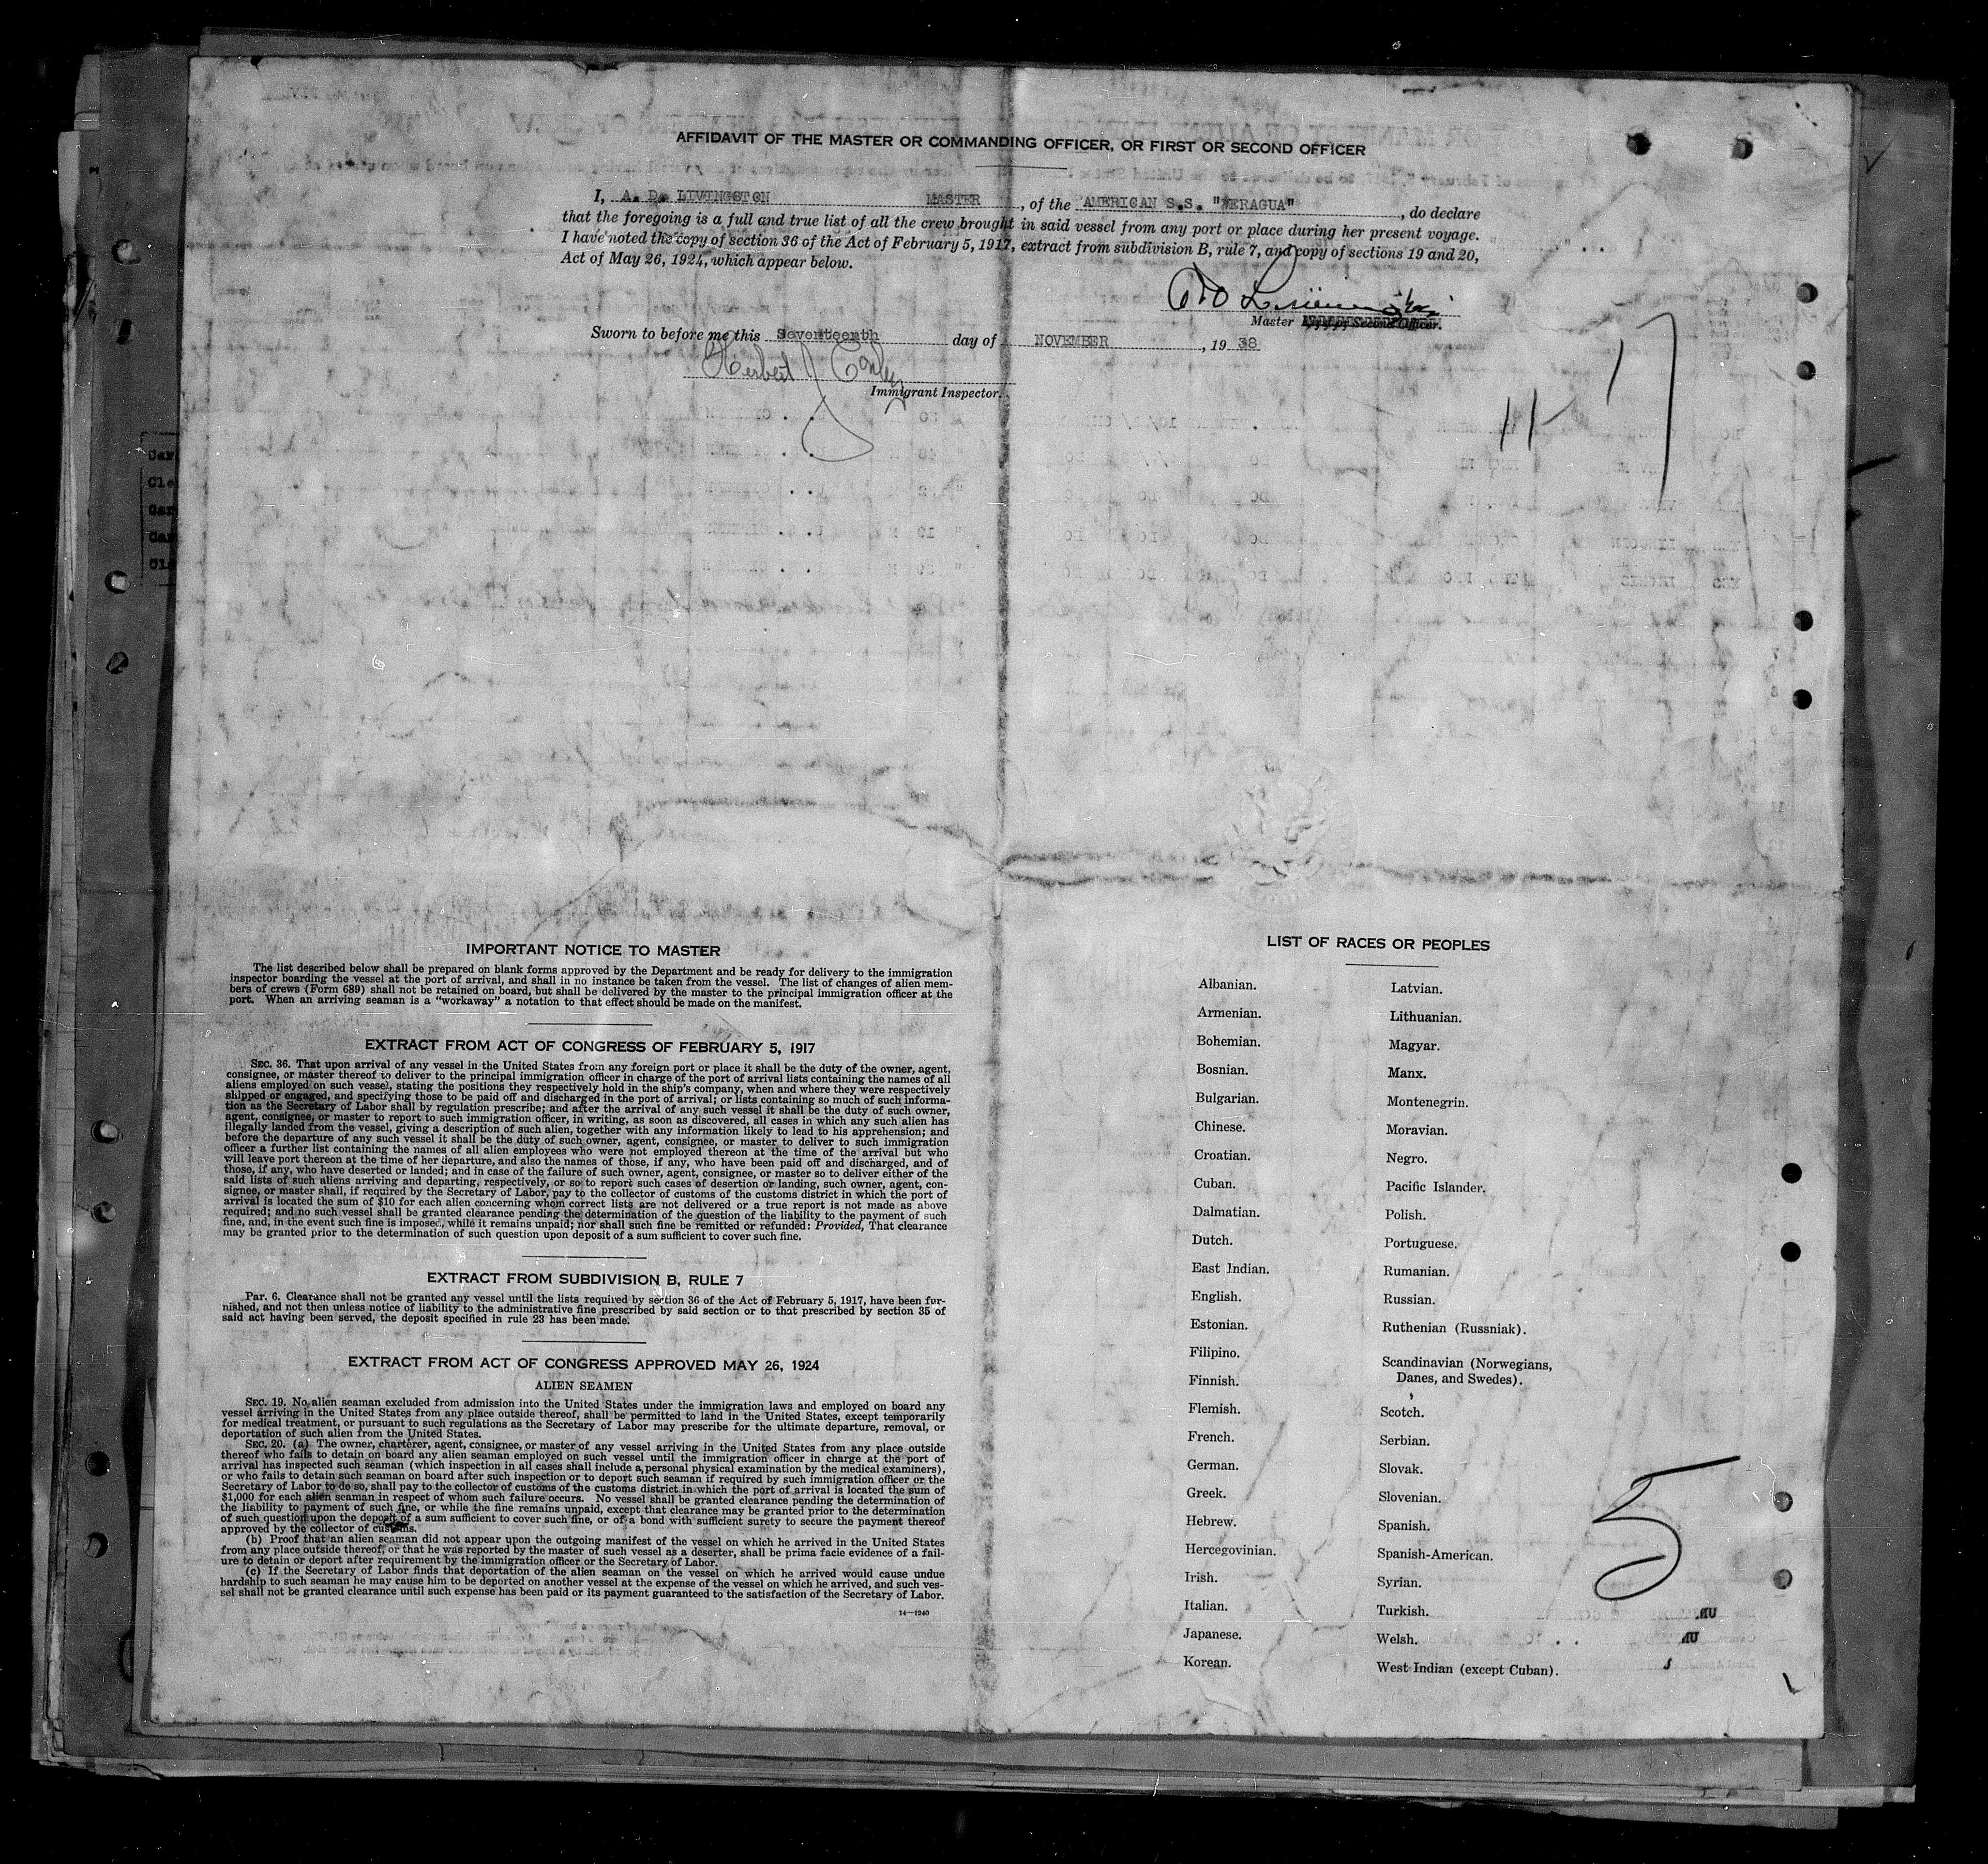 AFFIDAVIT OF THE MASTER OR COMMANDING OFFICER, OR FIRST OR SECOND OFFICER
I, A. D. LIVINGSTON MASTER, of the AMERICAN S.S. "VERAGUA", do declare
that the foregoing is a full and true list of all the crew brought in said vessel from any port or place during her present voyage.
I have noted the copy of section 36 of the Act of February 5, 1917, extract from subdivision B, rule 7, and copy of sections 19 and 20,
Act of May 26, 1924, which appear below.
Master First or Second Officer.
Sworn to before me this Seventeenth day of NOVEMBER, 19 38
Herbert J Conley
Immigrant Inspector.
11-17
IMPORTANT NOTICE TO MASTER
The list described below shall be prepared on blank forms approved by the Department and be ready for delivery to the immigration
inspector boarding the vessel at the port of arrival, and shall in no instance be taken from the vessel. The list of changes of alien mem-
bers of crews (Form 689) shall not be retained on board, but shall be delivered by the master to the principal immigration officer at the
port. When an arriving seaman is a "workaway" a notation to that effect should be made on the manifest.
EXTRACT FROM ACT OF CONGRESS OF FEBRUARY 5, 1917
SEC. 36. That upon arrival of any vessel in the United States from any foreign port or place it shall be the duty of the owner, agent,
consignee, or master thereof to deliver to the principal immigration officer in charge of the port of arrival lists containing the names of all
aliens employed on such vessel, stating the positions they respectively hold in the ship's company, when and where they were respectively
shipped or engaged, and specifying those to be paid off and discharged in the port of arrival; or lists containing so much of such informa-
tion as the Secretary of Labor shall by regulation prescribe; and after the arrival of any such vessel it shall be the duty of such owner,
agent, consignee, or master to report to such immigration officer, in writing, as soon as discovered, all cases in which any such alien has
illegally landed from the vessel, giving a description of such alien, together with any information likely to lead to his apprehension; and
before the departure of any such vessel it shall be the duty of such owner, agent, consignee, or master to deliver to such immigration
officer a further list containing the names of all alien employees who were not employed thereon at the time of the arrival but who
will leave port thereon at the time of her departure, and also the names of those, if any, who have been paid off and discharged, and of
those, if any, who have deserted or landed; and in case of the failure of such owner, agent, consignee, or master so to deliver either of the
said lists of such aliens arriving and departing, respectively, or so to report such cases of desertion or landing, such owner, agent, con-
signee, or master shall, if required by the Secretary of Labor, pay to the collector of customs of the customs district in which the port of
arrival is located the sum of $10 for each alien concerning whom correct lists are not delivered or a true report is not made as above
required; and no such vessel shall be granted clearance pending the determination of the question of the liability to the payment of such
fine, and, in the event such fine is imposed, while it remains unpaid; nor shall such fine be remitted or refunded: Provided, That clearance
may be granted prior to the determination of such question upon deposit of a sum sufficient to cover such fine.
EXTRACT FROM SUBDIVISION B, RULE 7
Par. 6. Clearance shall not be granted any vessel until the lists required by section 36 of the Act of February 5, 1917, have been fur-
nished, and not then unless notice of liability to the administrative fine prescribed by said section or to that prescribed by section 35 of
said act having been served, the deposit specified in rule 23 has been made.
EXTRACT FROM ACT OF CONGRESS APPROVED MAY 26, 1924
ALIEN SEAMEN
SEC. 19. No alien seaman excluded from admission into the United States under the immigration laws and employed on board any
vessel arriving in the United States from any place outside thereof, shall be permitted to land in the United States, except temporarily
for medical treatment, or pursuant to such regulations as the Secretary of Labor may prescribe for the ultimate departure, removal, or
deportation of such alien from the United States.
SEC. 20. (a) The owner, charterer, agent, consignee, or master of any vessel arriving in the United States from any place outside
thereof who fails to detain on board any alien seaman employed on such vessel until the immigration officer in charge at the port of
arrival has inspected such seaman (which inspection in all cases shall include a personal physical examination by the medical examiners),
or who fails to detain such seaman on board after such inspection or to deport such seaman if required by such immigration officer or the
Secretary of Labor to do so, shall pay to the collector of customs of the customs district in which the port of arrival is located the sum of
$1,000 for each alien seaman in respect of whom such failure occurs. No vessel shall be granted clearance pending the determination of
the liability to payment of such fine, or while the fine remains unpaid, except that clearance may be granted prior to the determination
of such question upon the deposit of a sum sufficient to cover such fine, or of a bond with sufficient surety to secure the payment thereof
approved by the collector of customs.
(b) Proof that an alien seaman did not appear upon the outgoing manifest of the vessel on which he arrived in the United States
from any place outside thereof, or that he was reported by the master of such vessel as a deserter, shall be prima facie evidence of a fail-
ure to detain or deport after requirement by the immigration officer or the Secretary of Labor.
(c) If the Secretary of Labor finds that deportation of the alien seaman on the vessel on which he arrived would cause undue
hardship to such seaman he may cause him to be deported on another vessel at the expense of the vessel on which he arrived, and such ves-
sel shall not be granted clearance until such expense has been paid or its payment guaranteed to the satisfaction of the Secretary of Labor.
14—1240
LIST OF RACES OR PEOPLES
Albanian.
Armenian.
Bohemian.
Bosnian.
Bulgarian.
Chinese.
Croatian.
Cuban.
Dalmatian.
Dutch.
East Indian.
English.
Estonian.
Filipino.
Finnish.
Flemish.
French.
German.
Greek.
Hebrew.
Hercegovinian.
Irish.
Italian.
Japanese.
Korean.
Latvian.
Lithuanian.
Magyar.
Manx.
Montenegrin.
Moravian.
Negro.
Pacific Islander.
Polish.
Portuguese.
Rumanian.
Russian.
Ruthenian (Russniak).
Scandinavian (Norwegians,
Danes, and Swedes).
Scotch.
Serbian.
Slovak.
Slovenian.
Spanish.
Spanish-American.
Syrian.
Turkish.
Welsh.
West Indian (except Cuban).
5